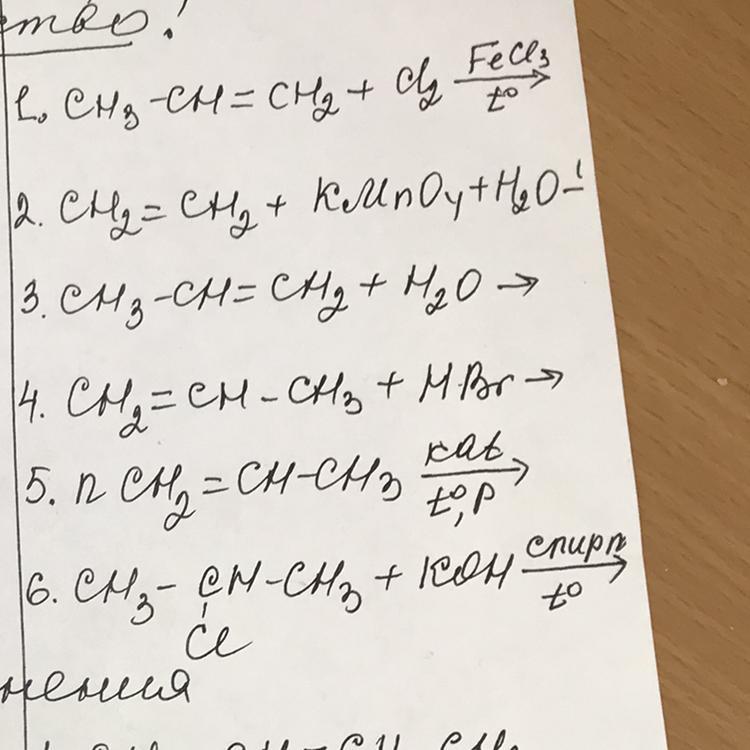 ство!
1. CH₃-CH=CH₂ + Cl₂ FeCl₃ t° →
2. CH₂=CH₂ + KMnO₄ + H₂O
3. CH₃-CH=CH₂ + H₂O →
4. CH₂=CH-CH₃ + HBr →
5. n CH₂=CH-CH₃ kat t°, P →
6. CH₃-CH-CH₃ + KOH спирт t° →
Cl
нения